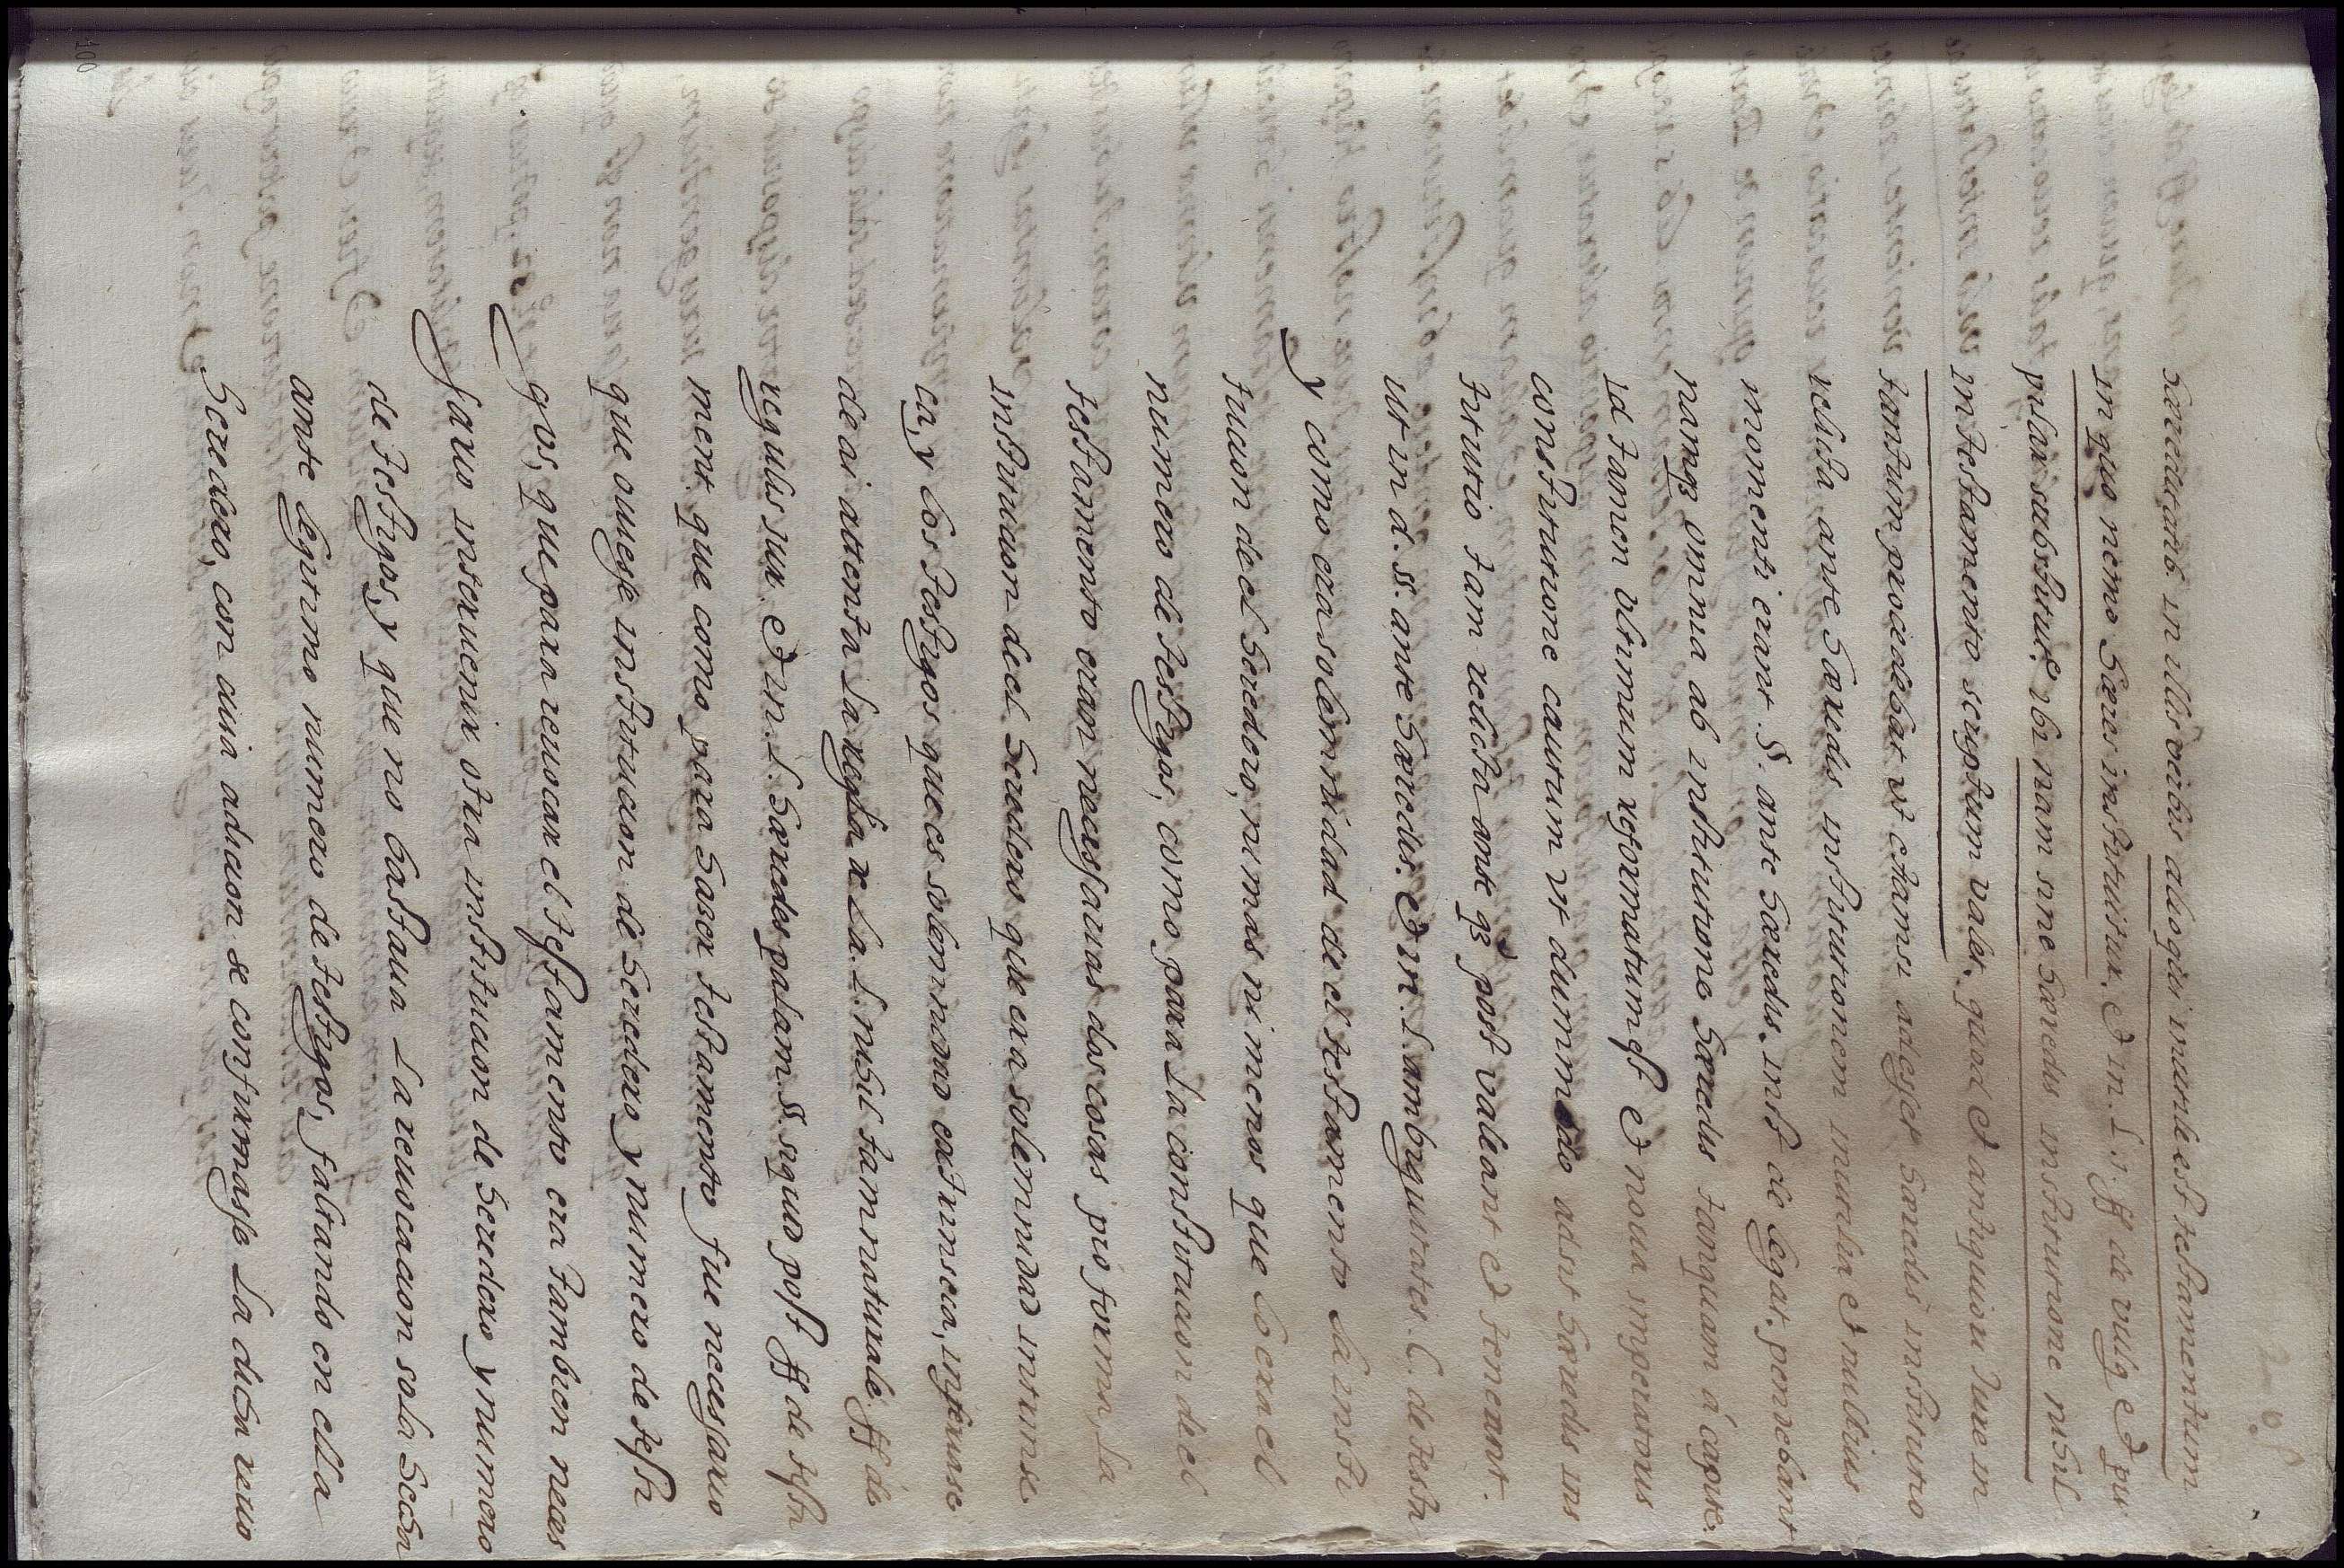 haereditatib. in illis verbis alioqui inutile est testamentum
in quo nemo haeres instituitur. et in. l. 1. ff de vulg et pu.
pilar substitut. ibi nam sine haeredis institutione nihil
in testamento scriptum valet. quod et antiquiori iure in
tantum procedebat ut etiamsi adesset haeredis institutio
relicta ante haeredis institutionem inutilia et nullius
momenti erant. §. ante haeredis. inst de legat. pendebant
namq3 omnia ab institutione haeredis tanquam á capite.
id tamen ultimum reformatum est et noua imperatoris
constitutione cautum ut dummodo adsit haeredis ins
titutio tam relicta ante q3 post valeant et teneant.
ut in d. §. ante haeredis. et in. l. ambiguitates. C. de testa
y como era solemnidad de el testamento la insti
tucion de el heredero, ni mas ni menos que lo era el
numero de testigos, como para la constitucion de el
testamento eran necessarias dos cosas pro forma, la
institucion de el heredero que era solemnidad intrinse
ca, y los testigos que es solemnidad extrinseca, infirmase
de ai attenta la regla de la. l. nihil tam naturale. ff de
regulis iur. et in. l. haeredes palam. §. si quid post ff de testa
ment. que como para hacer testamento fue necessario
que ouiesse institucion de heredero y numero de testi
gos, que para reuocar el testamento era tambien neces
sario interuenir otra institucion de heredero y numero
de testigos, y que no bastaua la reuocacion sola hecha
ante legitimo numero de testigos, faltando en ella
heredero, con cuia adicion se confirmasse la dicha reuo
100